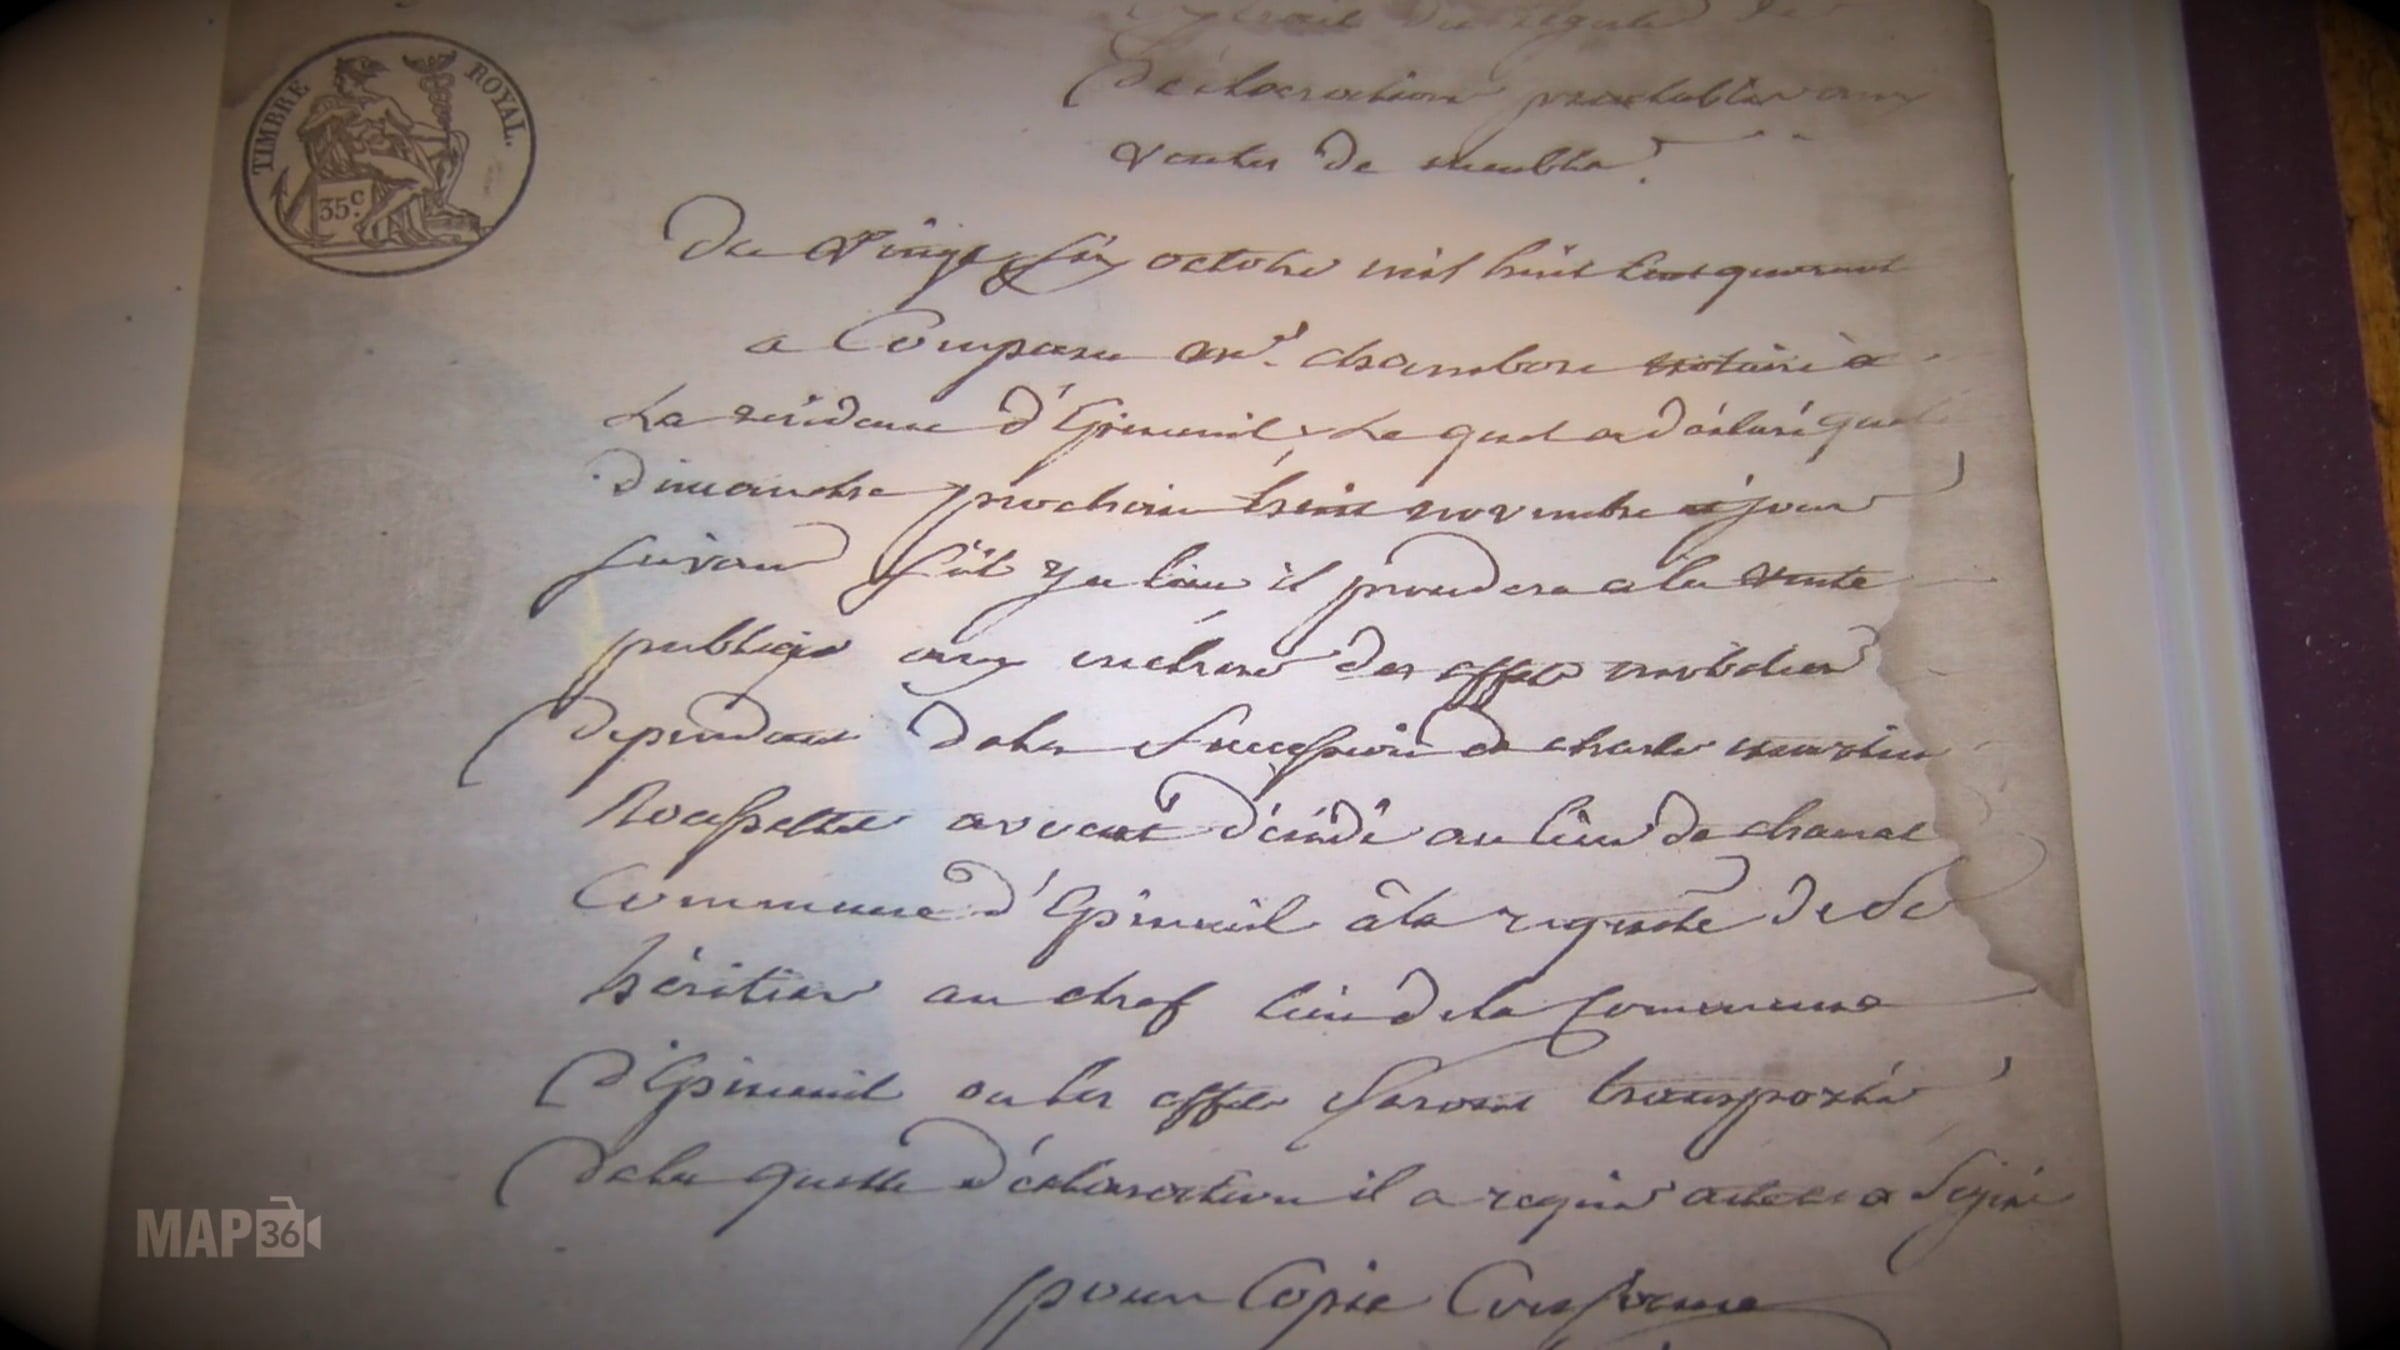 TIMBRE ROYAL.
35c.
Extrait du registre de
Déclaration prealable aux
ventes de meubles.
Du vingt six octobre mil huit cent quarante
a Comparu Me. chambore notaire à
La residence d'Epineuil, Le quel a déclaré que
dimanche prochain trente novembre et jour
suivant s'il y a lieu il procedera a la vente
publique aux enchere des effets mobilier
dependant dela Succession de charle
Rousselle avocat décédé au lieu de
Commune d'Epineuil à la requete de Se
héritier au chef lieu dela Commune
d'Epineuil ou les effets seront transporté
dela quelle déclaration il a requis acte et a Signé
pour Copie Conforme
MAP 36